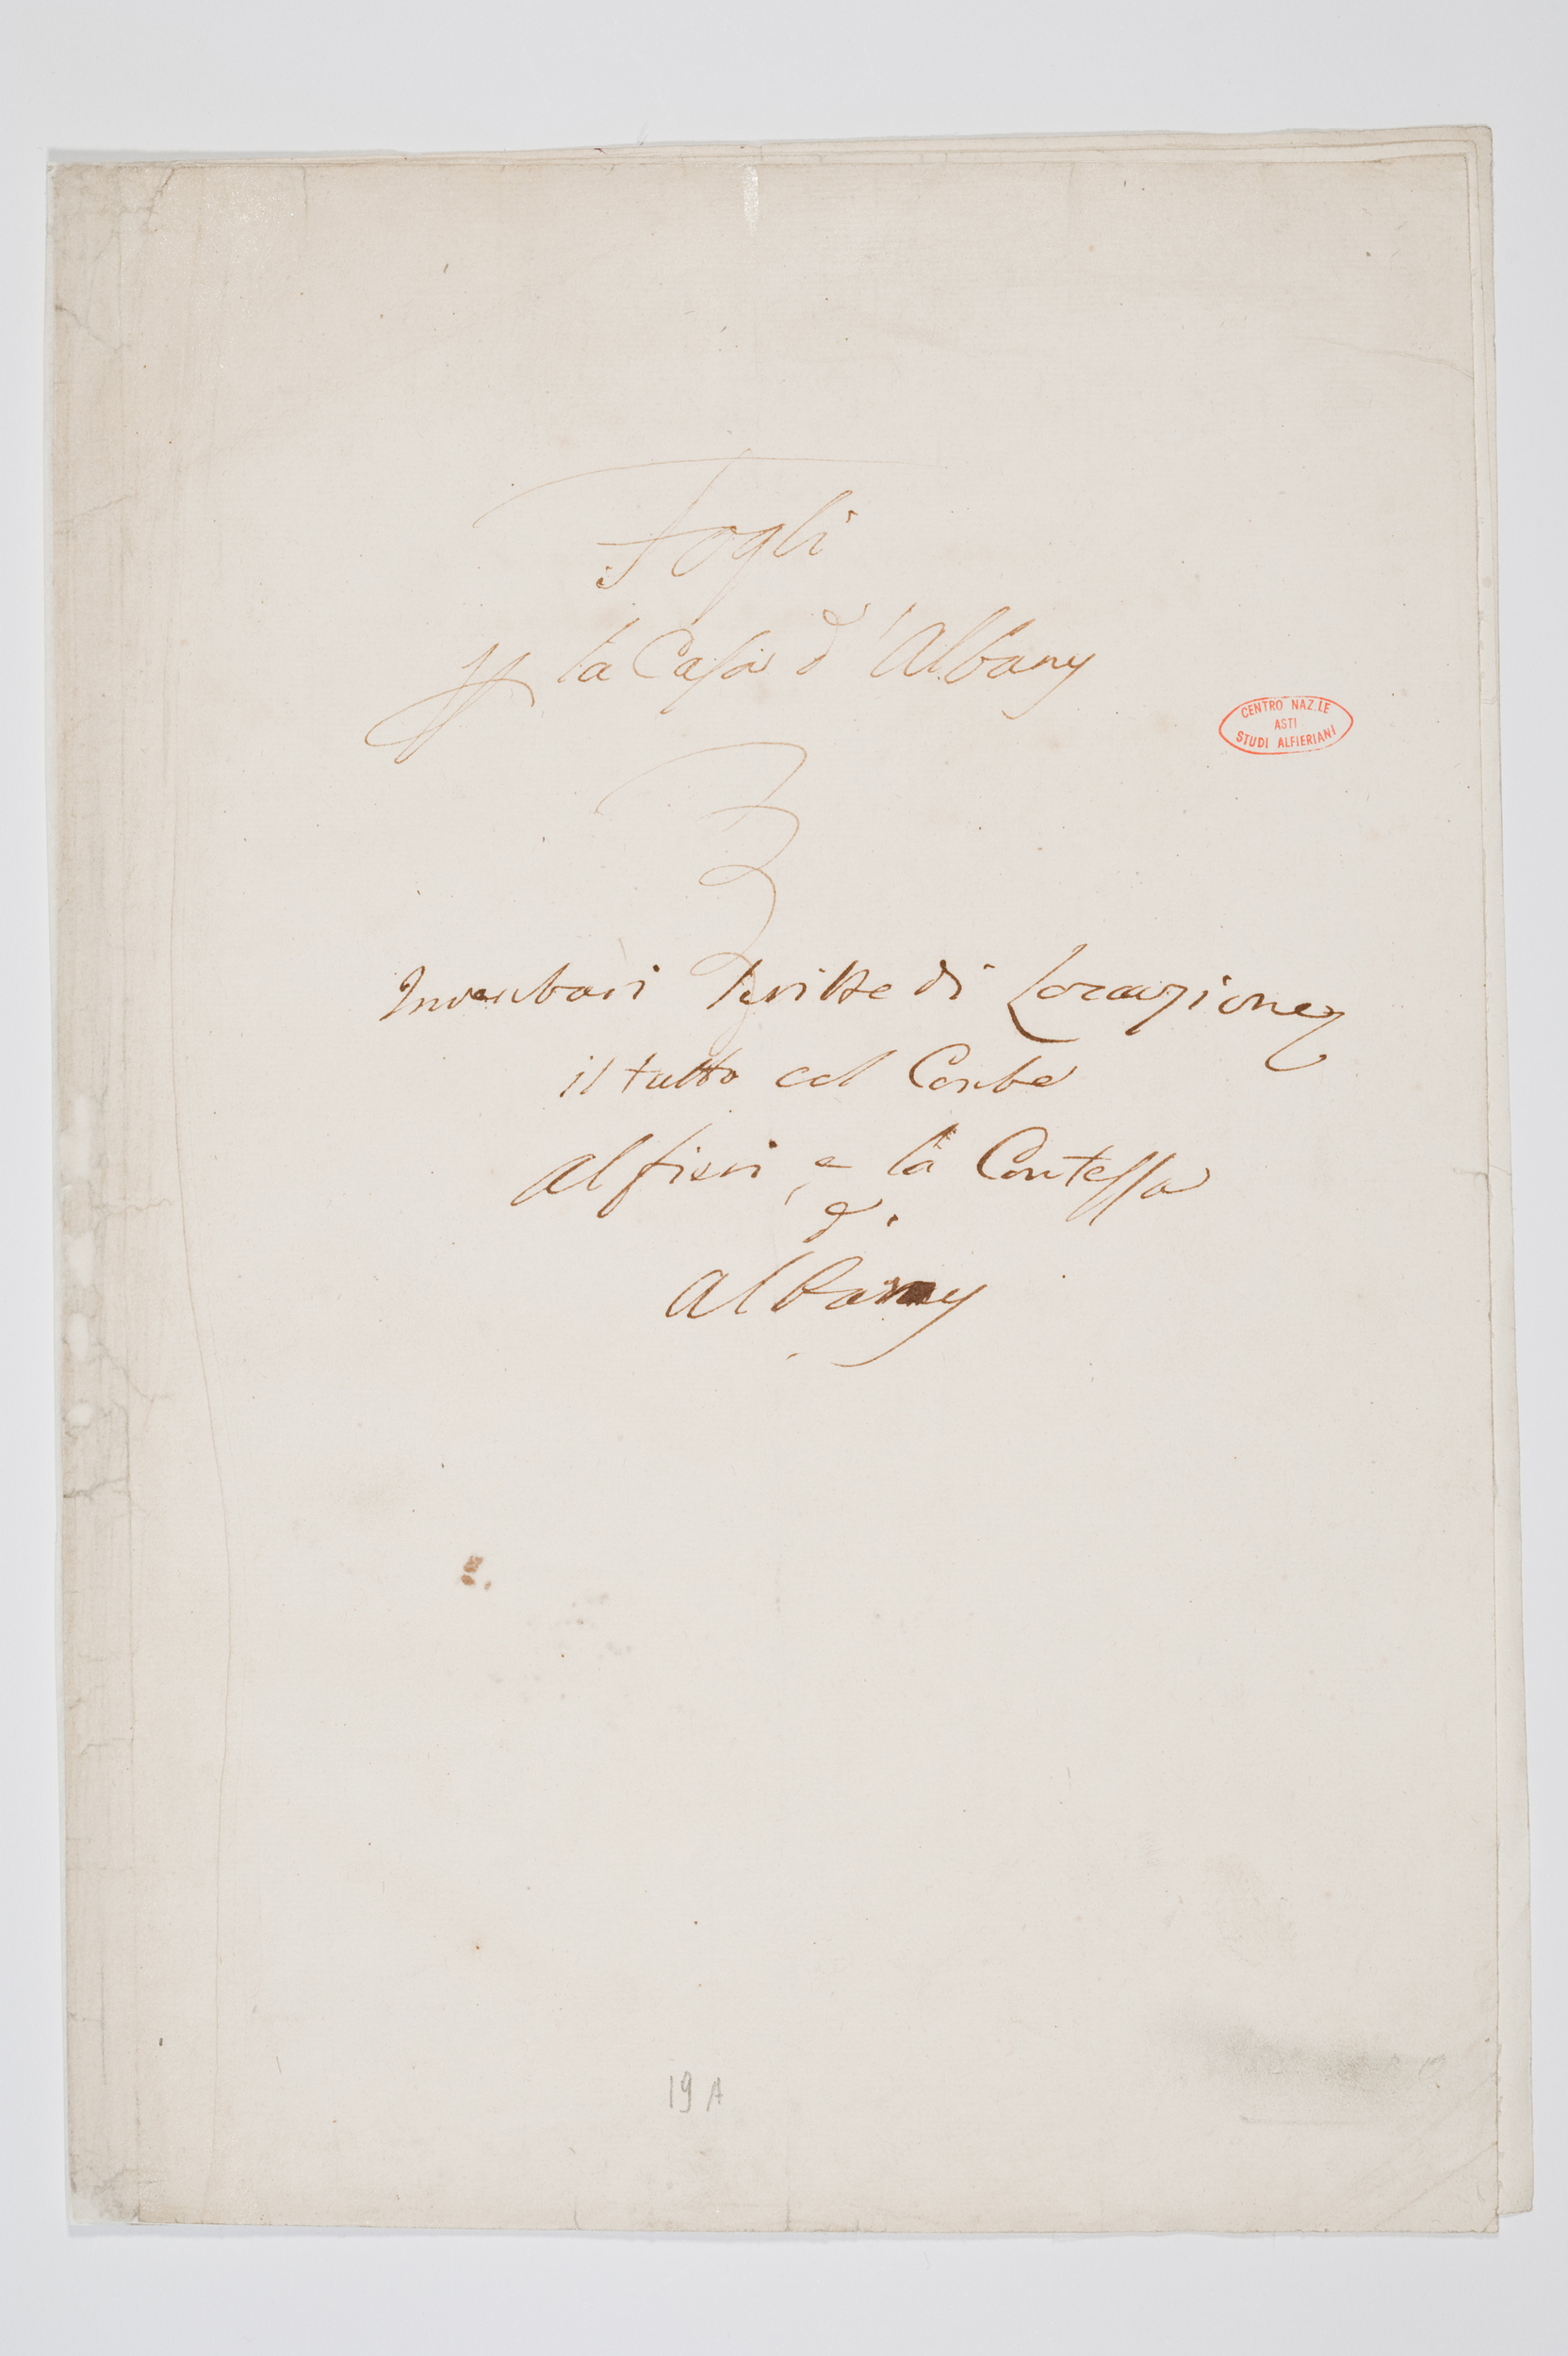 Fogli
p la Casa d'Albany
CENTRO NAZ.LE
ASTI
STUDI ALFIERIANI
Inventari Scritte di Locazione
il tutto col Conte
Alfieri e la Contessa
d'
Albany
19 A